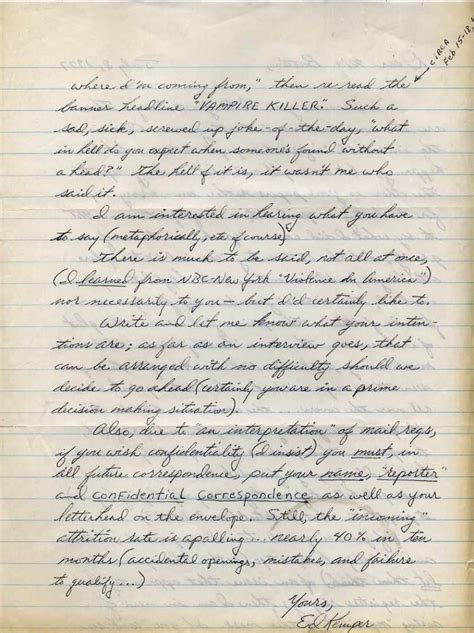 CIRCA
Feb 15-18,
where I'm coming from," then re-read the
banner headline "VAMPIRE KILLER". Such a
sad, sick, screwed up joke-of-the-day, "what
in hell do you expect when someone's found without
a head?" The hell of it is, it wasn't me who
said it.
I am interested in hearing what you have
to say (metaphorically, etc of course)
There is much to be said, not all at once,
(I learned from NBC-New York "Violence In America")
nor necessarily to you — but I'd certainly like to.
Write and let me know what your inten-
tions are; as far as an interview goes, that
can be arranged with no difficulty should we
decide to go ahead (certainly you are in a prime
decision making situation).
Also, due to "an interpretation" of mail regs,
if you wish confidentiality (I insist) you must, in
all future correspondence, put your name, "reporter"
and confidential correspondence as well as your
letterhead on the envelope. Still, the "incoming"
attrition rate is apalling... nearly 40% in ten
months (accidental openings, mistakes, and failure
to qualify...)
Yours,
Ed Kemper